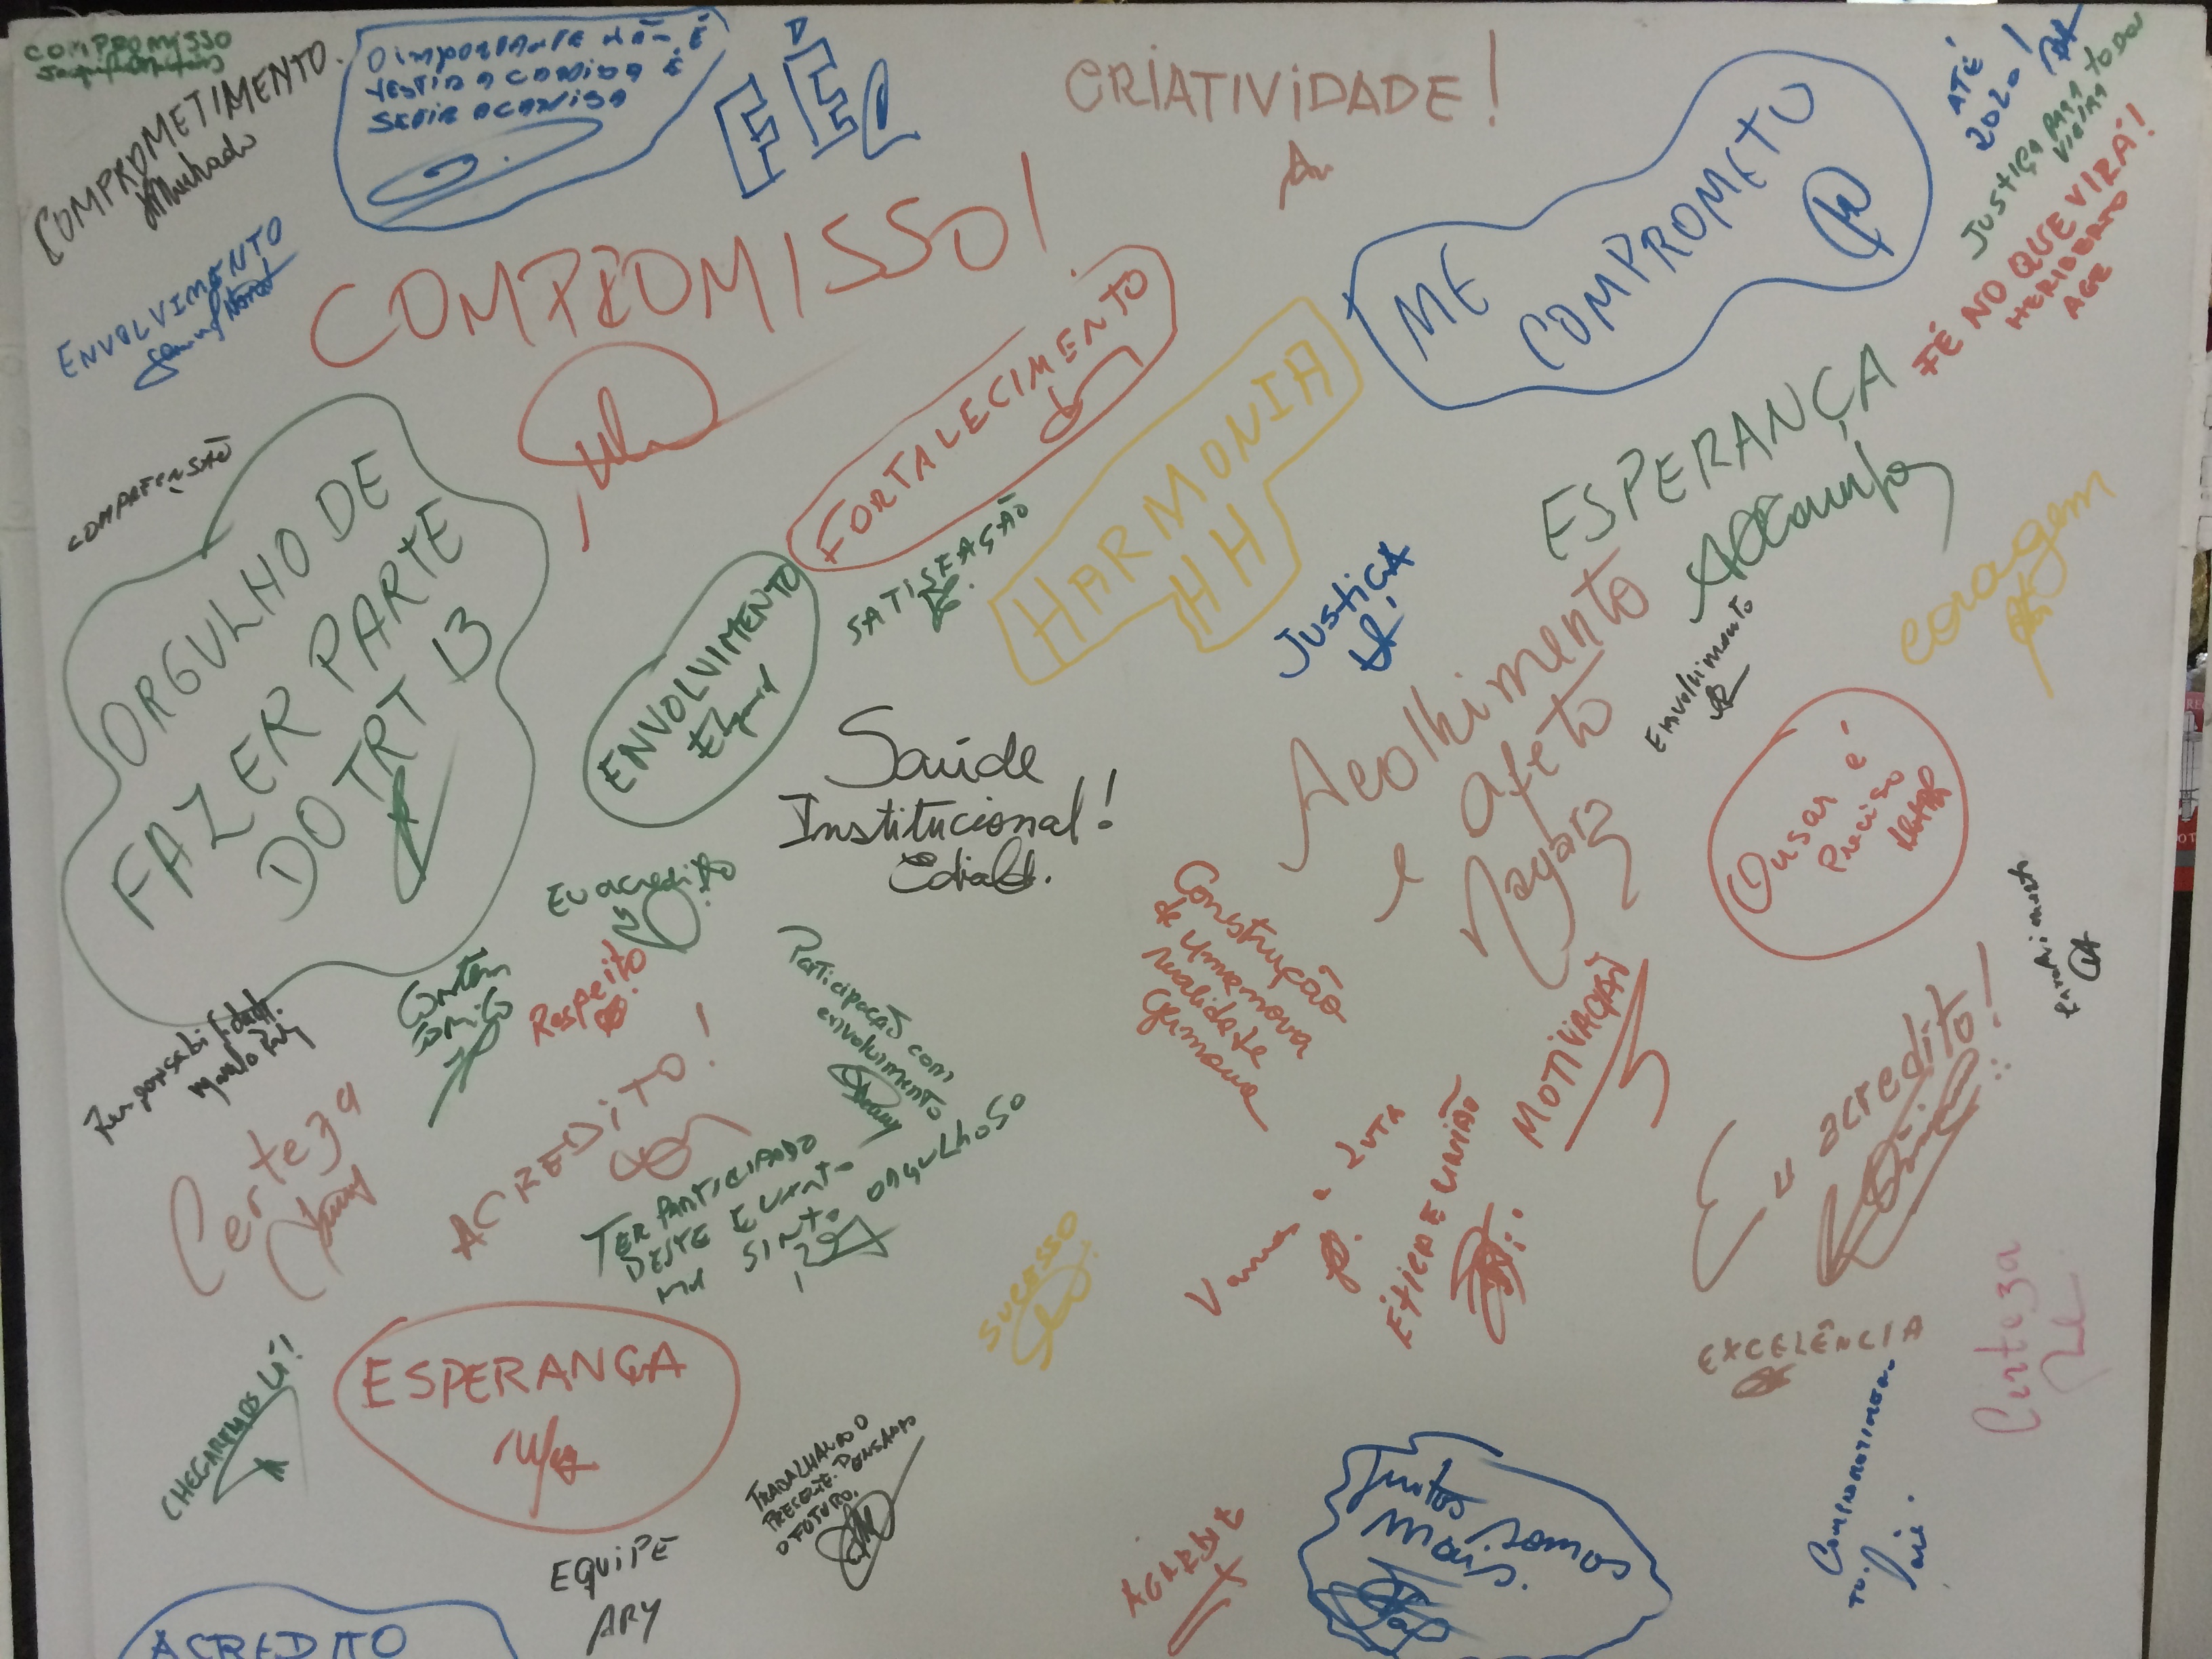 COMPROMISSO
COMPROMETIMENTO.
Machado
O IMPORTANTE NÃO É
VESTIR A CAMISA É
SENTIR A CAMISA
FÉ
CRIATIVIDADE!
ME
COMPROMETO
ATÉ
2020!
JUSTIÇA PARA TODOS
VIEIRA
FÉ NO QUE VIRÁ!
HERIBERTO
AGE
ENVOLVIMENTO
COMPROMISSO!
FORTALECIMENTO
HARMONIA
HH
ESPERANÇA
coragem
COMPREENSÃO
ORGULHO DE
FAZER PARTE
DO TRT 13
ENVOLVIMENTO
SATISFAÇÃO
JUSTIÇA
Acolhimento
e afeto
Envolvimento
Ousar é
Preciso
Saúde
Institucional!
EU acredito
Respeito
Participação com
envolvimento
Construção
de uma nova
realidade
MOTIVAÇÃO
Eu acredito!
Certeza
ACREDITO!
TER PARTICIPADO
DESTE EVENTO
ME SINTO ORGULHOSO
SUCESSO
Vamos à LUTA
ÉTICA E UNIÃO
EXCELÊNCIA
Certeza
CHEGAREMOS LÁ!
ESPERANÇA
TRABALHANDO O
PRESENTE. PENSANDO
O FUTURO.
EQUIPE
ARY
Juntos
somos
mais.
COMPROMETIMEN
TO.
ACREDITO